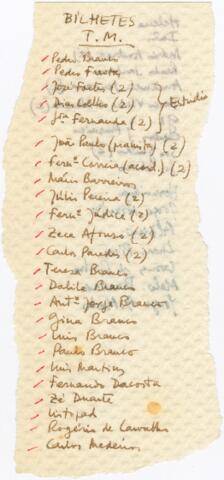 BILHETES
T. M.
Pedro Branco
Pedro Fragoso
José Fortes (2)
Dias Coelho (2)
Mª Fernanda (2)
Estúdio
João Paulo (pianista) (2)
Fernº Correia (acord.) (2)
Mário Barreiros
Júlio Pereira (2)
Fernº Júdice (2)
Zeca Afonso (2)
Carlos Paredes (2)
Teresa Branco
Dalila Branco
Antº Jorge Branco
Gina Branco
Luís Branco
Paulo Branco
Luís Martins
Fernando Dacosta
Zé Duarte
Rogério de Carvalho
Carlos Medeiros